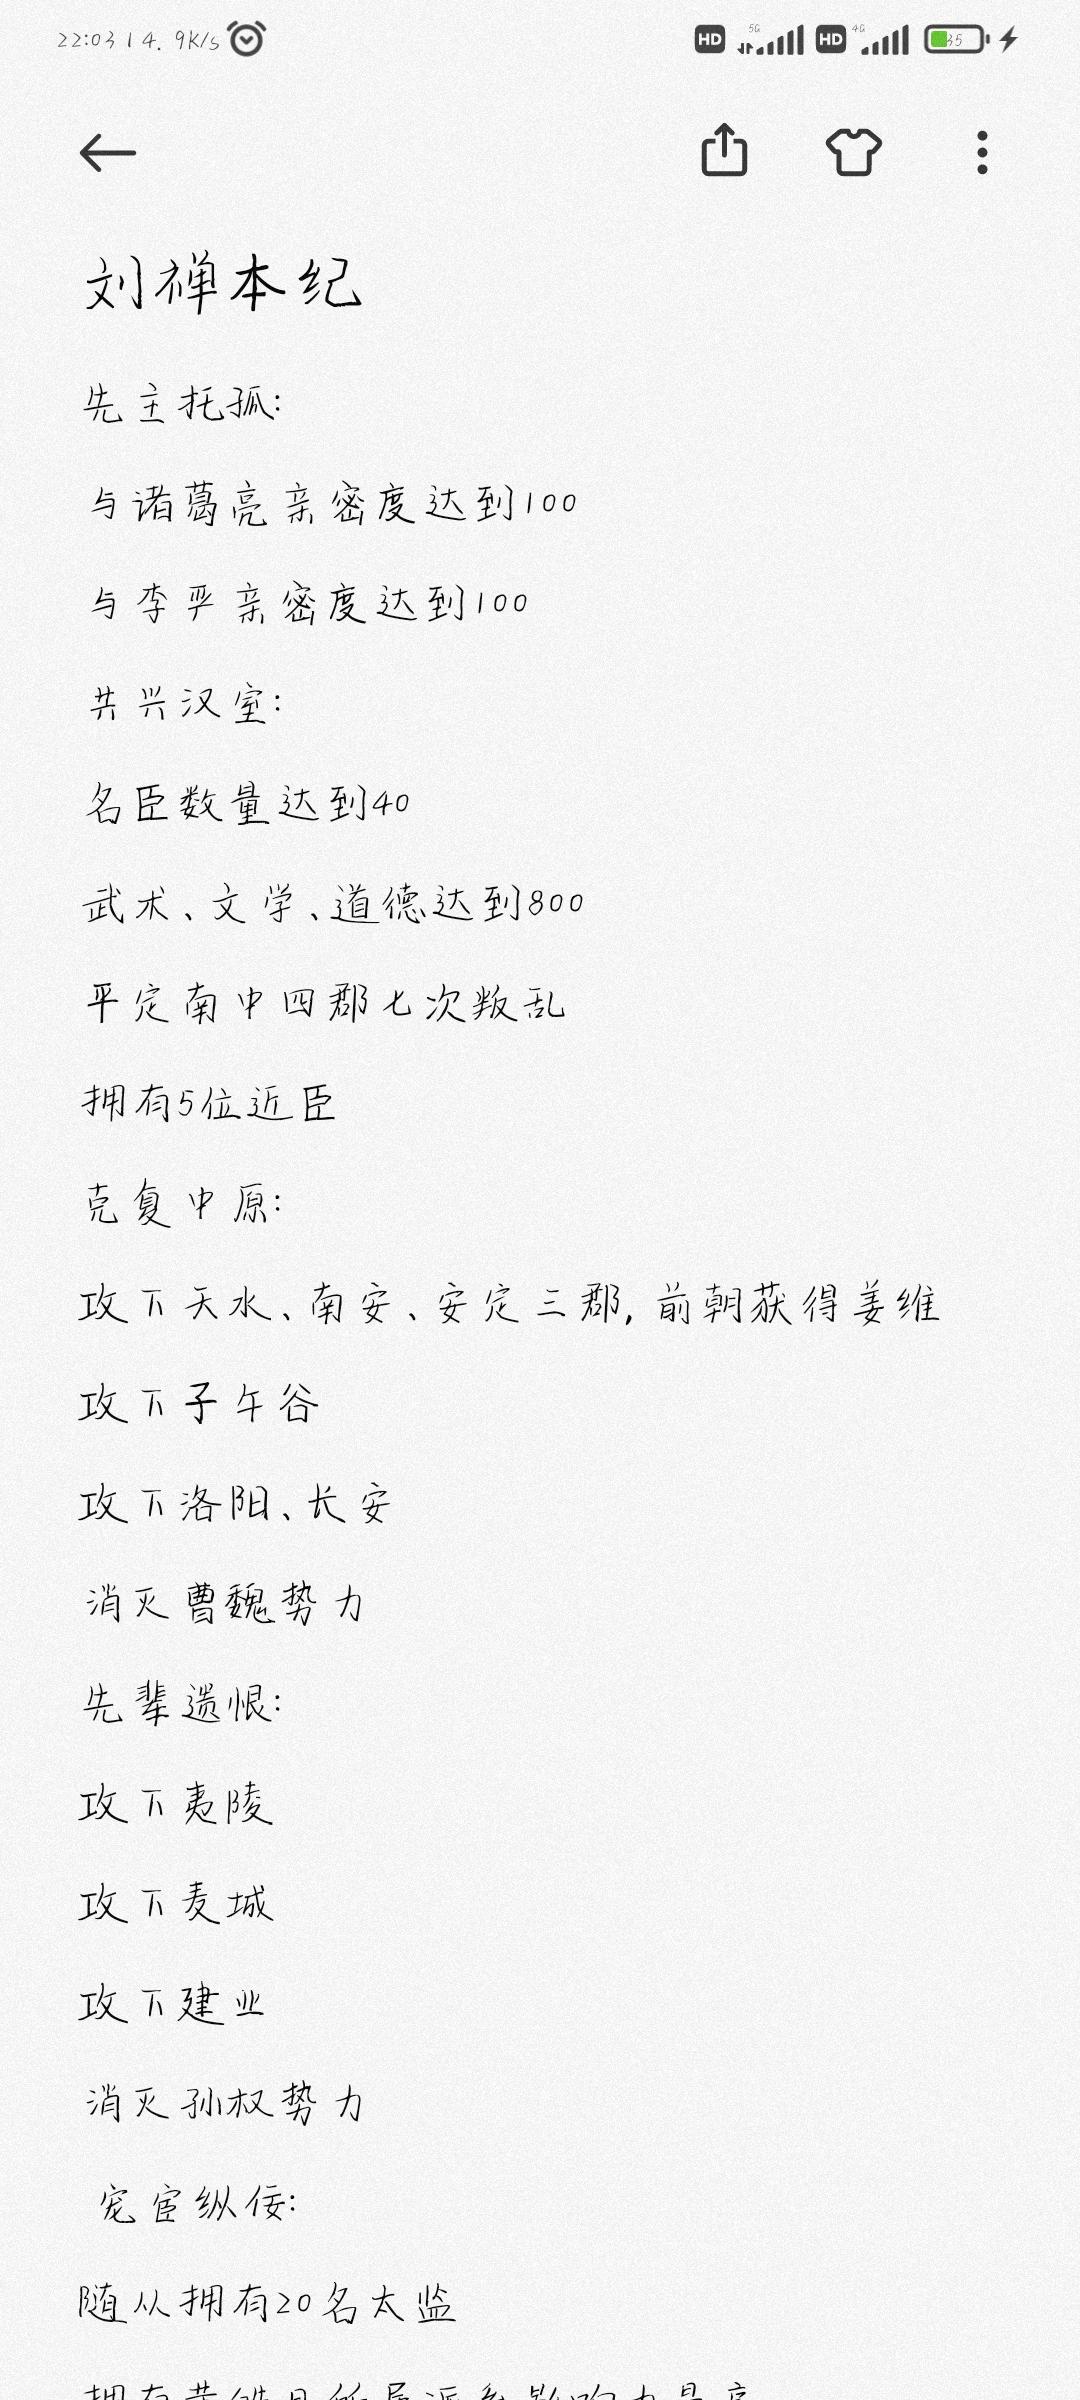 22:03 | 4.9K/s
HD 5G HD 4G 35
刘禅本纪
先主托孤:
与诸葛亮亲密度达到100
与李严亲密度达到100
共兴汉室:
名臣数量达到40
武术、文学、道德达到800
平定南中四郡七次叛乱
拥有5位近臣
克复中原:
攻下天水、南安、安定三郡, 前朝获得姜维
攻下子午谷
攻下洛阳、长安
消灭曹魏势力
先辈遗恨:
攻下夷陵
攻下麦城
攻下建业
消灭孙权势力
宠宦纵佞:
随从拥有20名太监